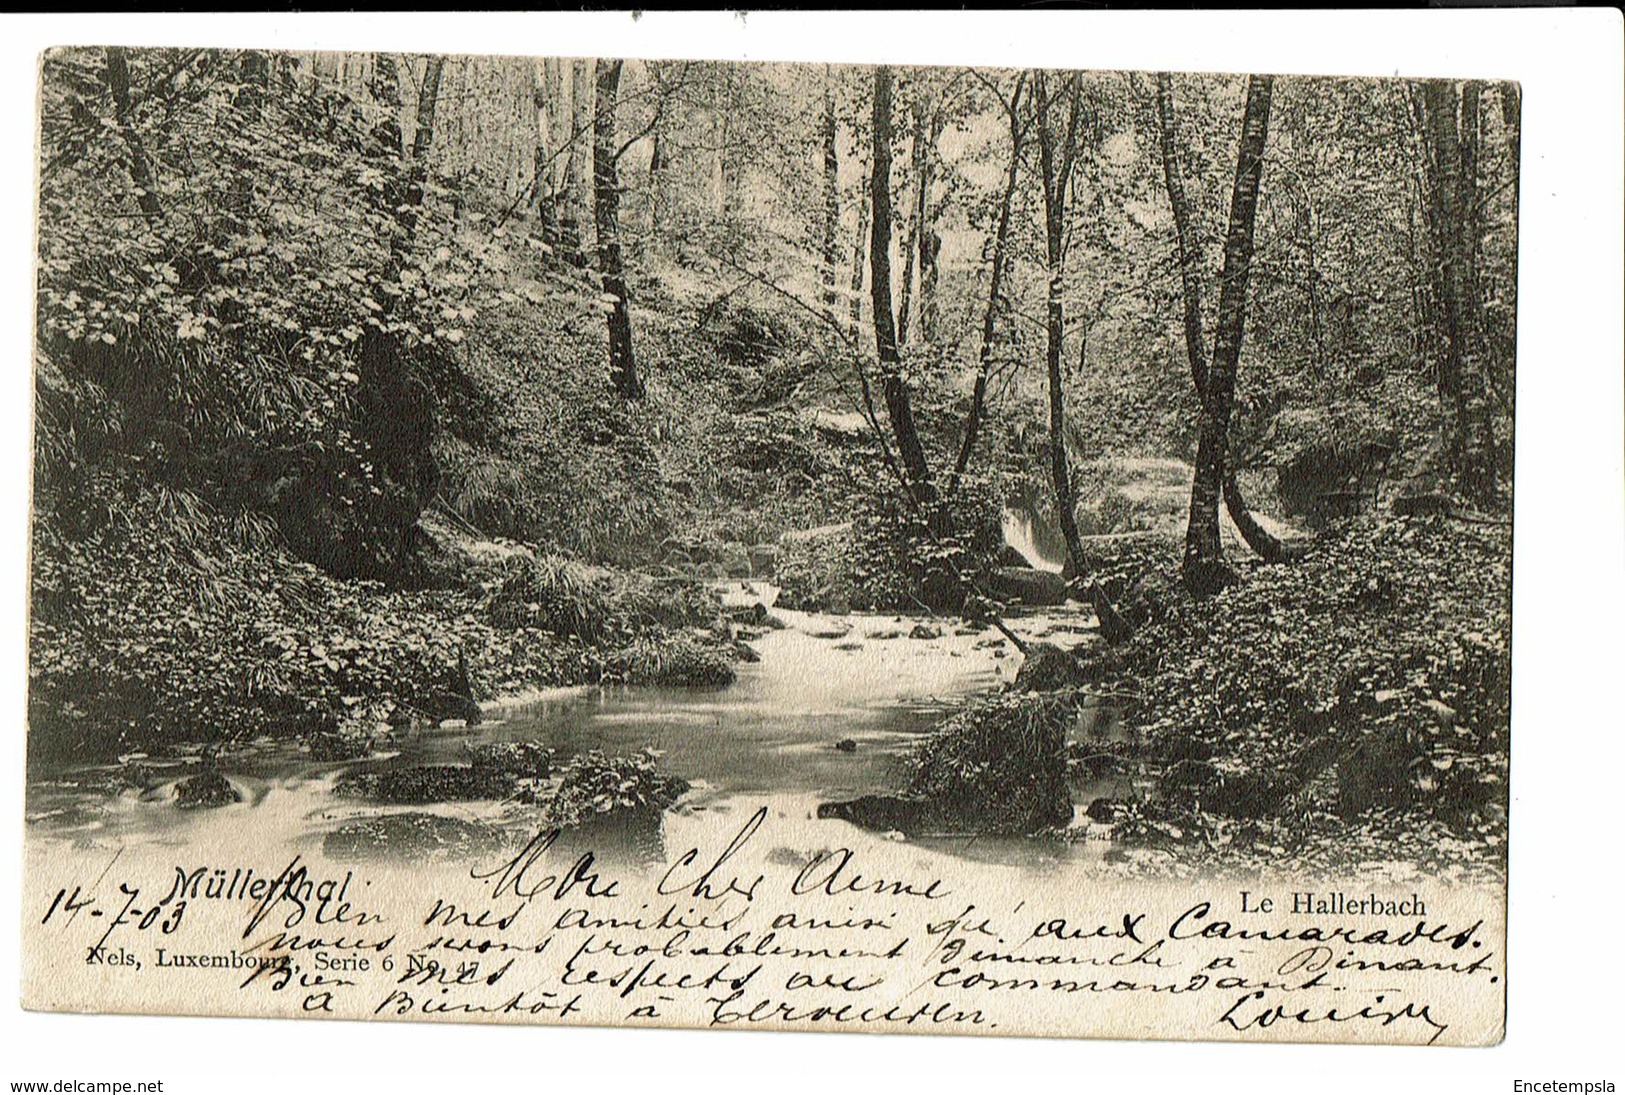 Müllerthal
Le Hallerbach
14-7-03
Mon cher Aimé
Bien mes amitiés ainsi qu'aux Camarades.
nous serons probablement Dimanche à Dinant.
Nels, Luxembourg, Serie 6 No. 47
Bien mes respects au commandant.
à Bientôt à Tervueren.
www.delcampe.net
Encetempsla